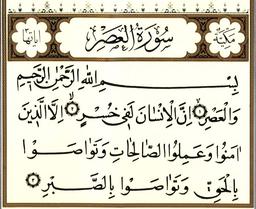 مكية سورة العصر اياتها
بِسْمِ اللهِ الرَّحْمٰنِ الرَّحِيْمِ
وَالْعَصْرِ ۝١ اِنَّ الْاِنْسَانَ لَفِيْ خُسْرٍ ۝٢ اِلَّا الَّذِيْنَ
اٰمَنُوْا وَعَمِلُوا الصَّالِحَاتِ وَتَوَاصَوْا
بِالْحَقِّ وَتَوَاصَوْا بِالصَّبْرِ ۝٣